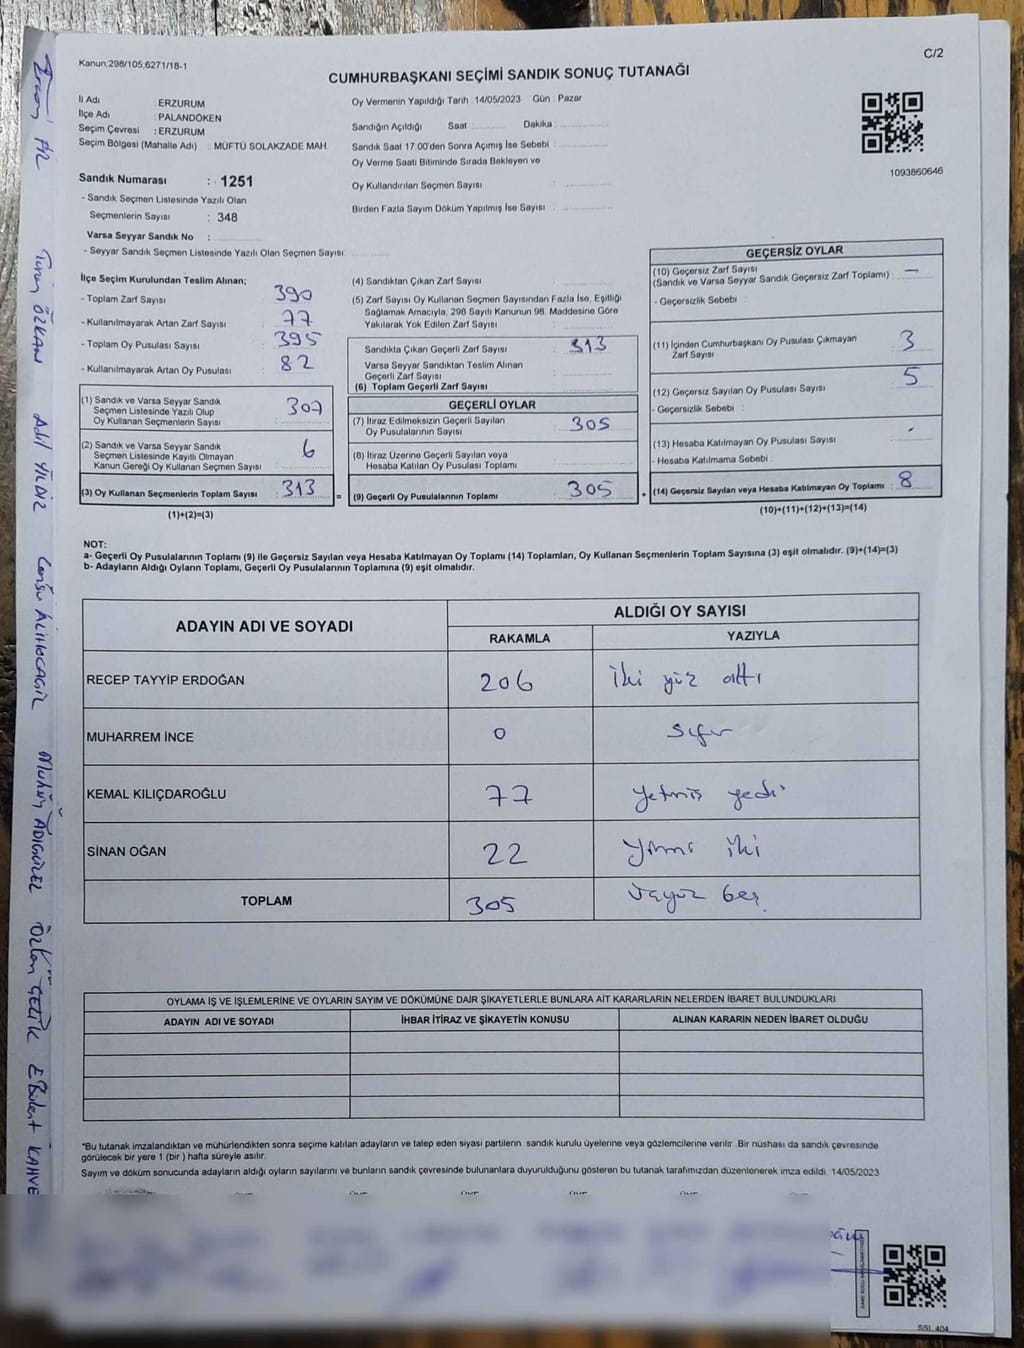 C/2
Kanun;298/105,6271/18-1
CUMHURBAŞKANI SEÇİMİ SANDIK SONUÇ TUTANAĞI
İl Adı : ERZURUM
İlçe Adı : PALANDÖKEN
Seçim Çevresi : ERZURUM
Seçim Bölgesi (Mahalle Adı) : MÜFTÜ SOLAKZADE MAH.
Sandık Numarası : 1251
- Sandık Seçmen Listesinde Yazılı Olan
Seçmenlerin Sayısı : 348
Varsa Seyyar Sandık No :
- Seyyar Sandık Seçmen Listesinde Yazılı Olan Seçmen Sayısı:
Oy Vermenin Yapıldığı Tarih : 14/05/2023 Gün : Pazar
Sandığın Açıldığı Saat : Dakika :
Sandık Saat 17:00'den Sonra Açımış İse Sebebi :
Oy Verme Saati Bitiminde Sırada Bekleyen ve
Oy Kullandırılan Seçmen Sayısı :
Birden Fazla Sayım Döküm Yapılmış İse Sayısı :
1093860646
İlçe Seçim Kurulundan Teslim Alınan;
- Toplam Zarf Sayısı : 390
- Kullanılmayarak Artan Zarf Sayısı : 77
- Toplam Oy Pusulası Sayısı : 395
- Kullanılmayarak Artan Oy Pusulası : 82
(1) Sandık ve Varsa Seyyar Sandık
Seçmen Listesinde Yazılı Olup
Oy Kullanan Seçmenlerin Sayısı : 307
(2) Sandık ve Varsa Seyyar Sandık
Seçmen Listesinde Kayıtlı Olmayan
Kanun Gereği Oy Kullanan Seçmen Sayısı : 6
(3) Oy Kullanan Seçmenlerin Toplam Sayısı : 313 =
(1)+(2)=(3)
(4) Sandıktan Çıkan Zarf Sayısı :
(5) Zarf Sayısı Oy Kullanan Seçmen Sayısından Fazla İse, Eşitliği
Sağlamak Amacıyla, 298 Sayılı Kanunun 98. Maddesine Göre
Yakılarak Yok Edilen Zarf Sayısı :
Sandıkta Çıkan Geçerli Zarf Sayısı : 313
Varsa Seyyar Sandıktan Teslim Alınan
Geçerli Zarf Sayısı :
(6) Toplam Geçerli Zarf Sayısı :
GEÇERLİ OYLAR
(7) İtiraz Edilmeksizin Geçerli Sayılan
Oy Pusulalarının Sayısı : 305
(8) İtiraz Üzerine Geçerli Sayılan veya
Hesaba Katılan Oy Pusulası Toplamı :
(9) Geçerli Oy Pusulalarının Toplamı : 305 +
GEÇERSİZ OYLAR
(10) Geçersiz Zarf Sayısı
(Sandık ve Varsa Seyyar Sandık Geçersiz Zarf Toplamı) : –
- Geçersizlik Sebebi :
(11) İçinden Cumhurbaşkanı Oy Pusulası Çıkmayan
Zarf Sayısı : 3
(12) Geçersiz Sayılan Oy Pusulası Sayısı : 5
- Geçersizlik Sebebi :
(13) Hesaba Katılmayan Oy Pusulası Sayısı : -
- Hesaba Katılmama Sebebi :
(14) Geçersiz Sayılan veya Hesaba Katılmayan Oy Toplamı : 8
(10)+(11)+(12)+(13)=(14)
NOT:
a- Geçerli Oy Pusulalarının Toplamı (9) ile Geçersiz Sayılan veya Hesaba Katılmayan Oy Toplamı (14) Toplamları, Oy Kullanan Seçmenlerin Toplam Sayısına (3) eşit olmalıdır. (9)+(14)=(3)
b- Adayların Aldığı Oyların Toplamı, Geçerli Oy Pusulalarının Toplamına (9) eşit olmalıdır.
ADAYIN ADI VE SOYADI ALDIĞI OY SAYISI
RAKAMLA YAZIYLA
RECEP TAYYİP ERDOĞAN 206 İki yüz altı
MUHARREM İNCE 0 sıfır
KEMAL KILIÇDAROĞLU 77 yetmiş yedi
SİNAN OĞAN 22 yirmi iki
TOPLAM 305 üçyüz beş
OYLAMA İŞ VE İŞLEMLERİNE VE OYLARIN SAYIM VE DÖKÜMÜNE DAİR ŞİKAYETLERLE BUNLARA AİT KARARLARIN NELERDEN İBARET BULUNDUKLARI
ADAYIN ADI VE SOYADI İHBAR İTİRAZ VE ŞİKAYETİN KONUSU ALINAN KARARIN NEDEN İBARET OLDUĞU
*Bu tutanak imzalandıktan ve mühürlendikten sonra seçime katılan adayların ve talep eden siyasi partilerin sandık kurulu üyelerine veya gözlemcilerine verilir. Bir nüshası da sandık çevresinde
görülecek bir yere 1 (bir ) hafta süreyle asılır.
Sayım ve döküm sonucunda adayların aldığı oyların sayılarını ve bunların sandık çevresinde bulunanlara duyurulduğunu gösteren bu tutanak tarafımızdan düzenlenerek imza edildi. 14/05/2023
SSL 404
Turan ÖZKAN
Adil YILDIZ
Cansu ALİHOCAGİL
Muhsin ADIGÜZEL
Özkan ÇELİK
E Bülent KAHVE